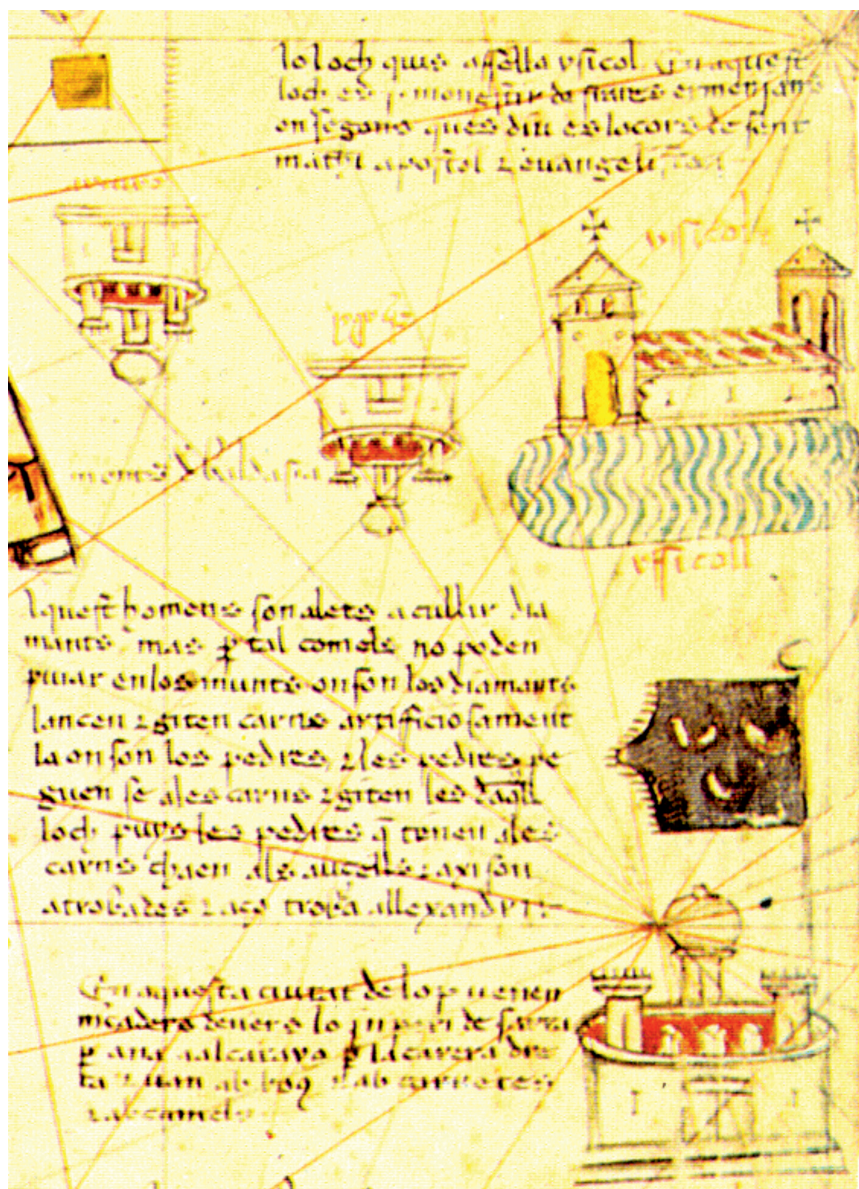 lo loch quis apella ysicol En aquest
loch es .j. monestir de frares ermenians
on segons ques diu es lo cors de sent
matheu apostol ⁊ evangelista
ysicol
monts de baldasia
yssicoll
Aquest homens son alets a cullir dia
mants mas p̱ tal com els no poden
puiar en los munts on son los diamants
lancen ⁊ giten carns artifficiosament
la on son los pedres, ⁊ les pedres pe
guen se ales carns ⁊ giten les daq̄ll
loch puys les pedres q̄ tenen ales
carns chaen als aucells ⁊ axi son
atrobades ⁊ aço troba allexandri
En aquesta ciutat de lop venen
m̄caders devers lo inperi de sarra
p̱ ana al catayo p̱ la carera dre
ta ⁊ van ab boys ⁊ ab carretes
⁊ ab camels